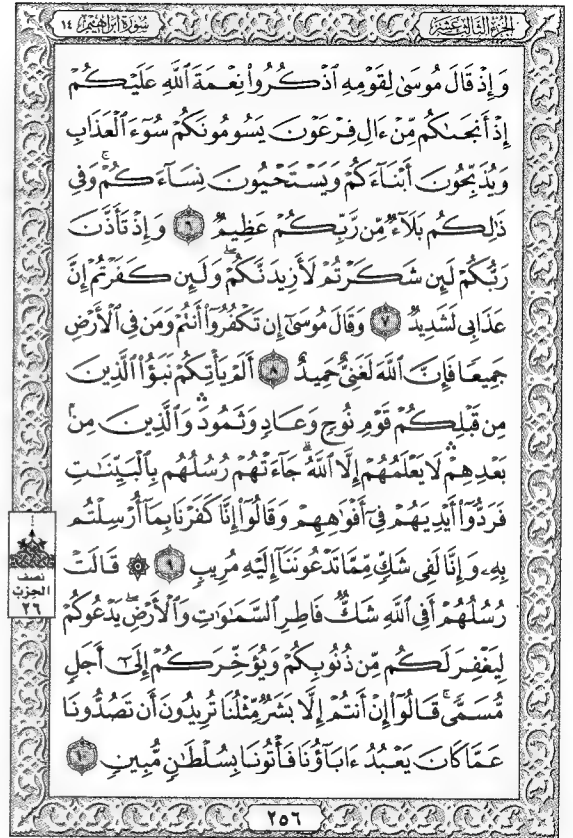 سورة إبراهيم ١٤
الجزء الثالث عشر
وَإِذْ قَالَ مُوسَىٰ لِقَوْمِهِ ٱذْكُرُوا۟ نِعْمَةَ ٱللَّهِ عَلَيْكُمْ
إِذْ أَنجَىٰكُم مِّنْ ءَالِ فِرْعَوْنَ يَسُومُونَكُمْ سُوٓءَ ٱلْعَذَابِ
وَيُذَبِّحُونَ أَبْنَآءَكُمْ وَيَسْتَحْيُونَ نِسَآءَكُمْ ۚ وَفِى
ذَٰلِكُم بَلَآءٌ مِّن رَّبِّكُمْ عَظِيمٌ ٦ وَإِذْ تَأَذَّنَ
رَبُّكُمْ لَئِن شَكَرْتُمْ لَأَزِيدَنَّكُمْ ۖ وَلَئِن كَفَرْتُمْ إِنَّ
عَذَابِى لَشَدِيدٌ ٧ وَقَالَ مُوسَىٰٓ إِن تَكْفُرُوٓا۟ أَنتُمْ وَمَن فِى ٱلْأَرْضِ
جَمِيعًا فَإِنَّ ٱللَّهَ لَغَنِىٌّ حَمِيدٌ ٨ أَلَمْ يَأْتِكُمْ نَبَؤُا۟ ٱلَّذِينَ
مِن قَبْلِكُمْ قَوْمِ نُوحٍ وَعَادٍ وَثَمُودَ ۛ وَٱلَّذِينَ مِنۢ
بَعْدِهِمْ ۛ لَا يَعْلَمُهُمْ إِلَّا ٱللَّهُ ۚ جَآءَتْهُمْ رُسُلُهُم بِٱلْبَيِّنَٰتِ
فَرَدُّوٓا۟ أَيْدِيَهُمْ فِىٓ أَفْوَٰهِهِمْ وَقَالُوٓا۟ إِنَّا كَفَرْنَا بِمَآ أُرْسِلْتُم
بِهِۦ وَإِنَّا لَفِى شَكٍّ مِّمَّا تَدْعُونَنَآ إِلَيْهِ مُرِيبٍ ٩ ۞ قَالَتْ
رُسُلُهُمْ أَفِى ٱللَّهِ شَكٌّ فَاطِرِ ٱلسَّمَٰوَٰتِ وَٱلْأَرْضِ ۖ يَدْعُوكُمْ
لِيَغْفِرَ لَكُم مِّن ذُنُوبِكُمْ وَيُؤَخِّرَكُمْ إِلَىٰٓ أَجَلٍ
مُّسَمًّى ۚ قَالُوٓا۟ إِنْ أَنتُمْ إِلَّا بَشَرٌ مِّثْلُنَا تُرِيدُونَ أَن تَصُدُّونَا
عَمَّا كَانَ يَعْبُدُ ءَابَآؤُنَا فَأْتُونَا بِسُلْطَٰنٍ مُّبِينٍ ١٠
نصف
الحزب
٢٦
٢٥٦